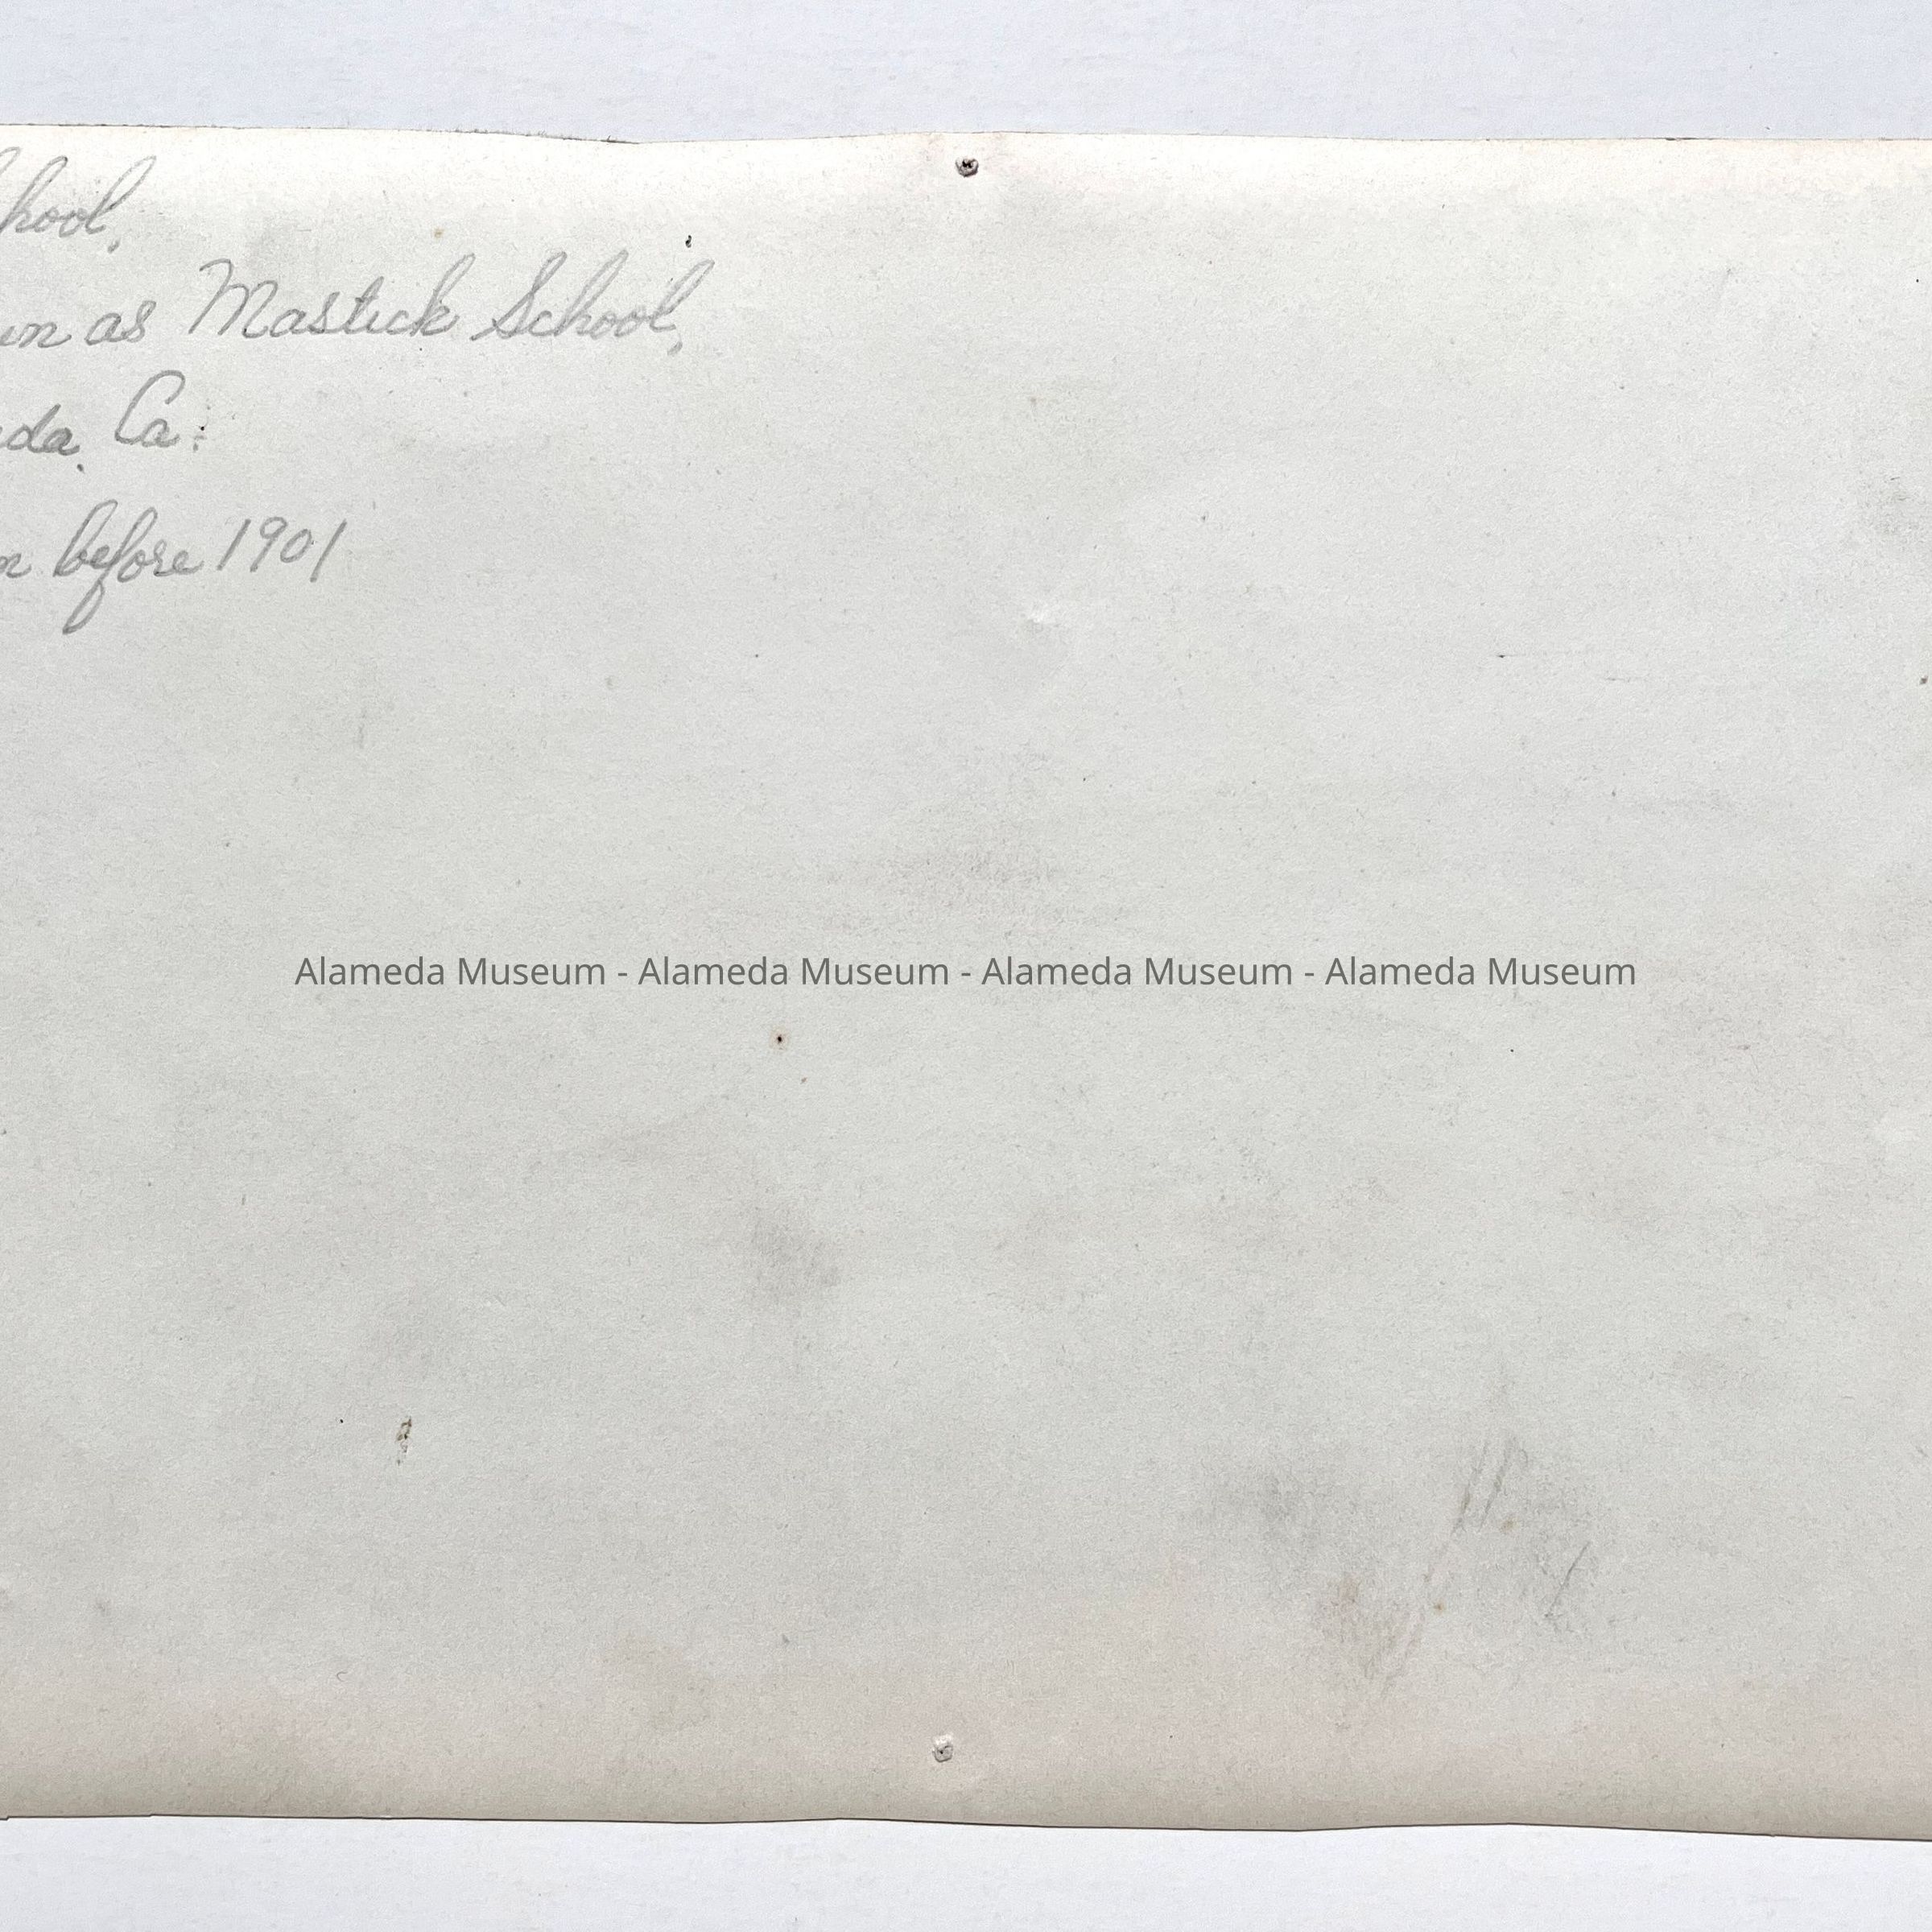 hool,
un as Mastick School,
da, Ca.
n before 1901
Alameda Museum - Alameda Museum - Alameda Museum - Alameda Museum